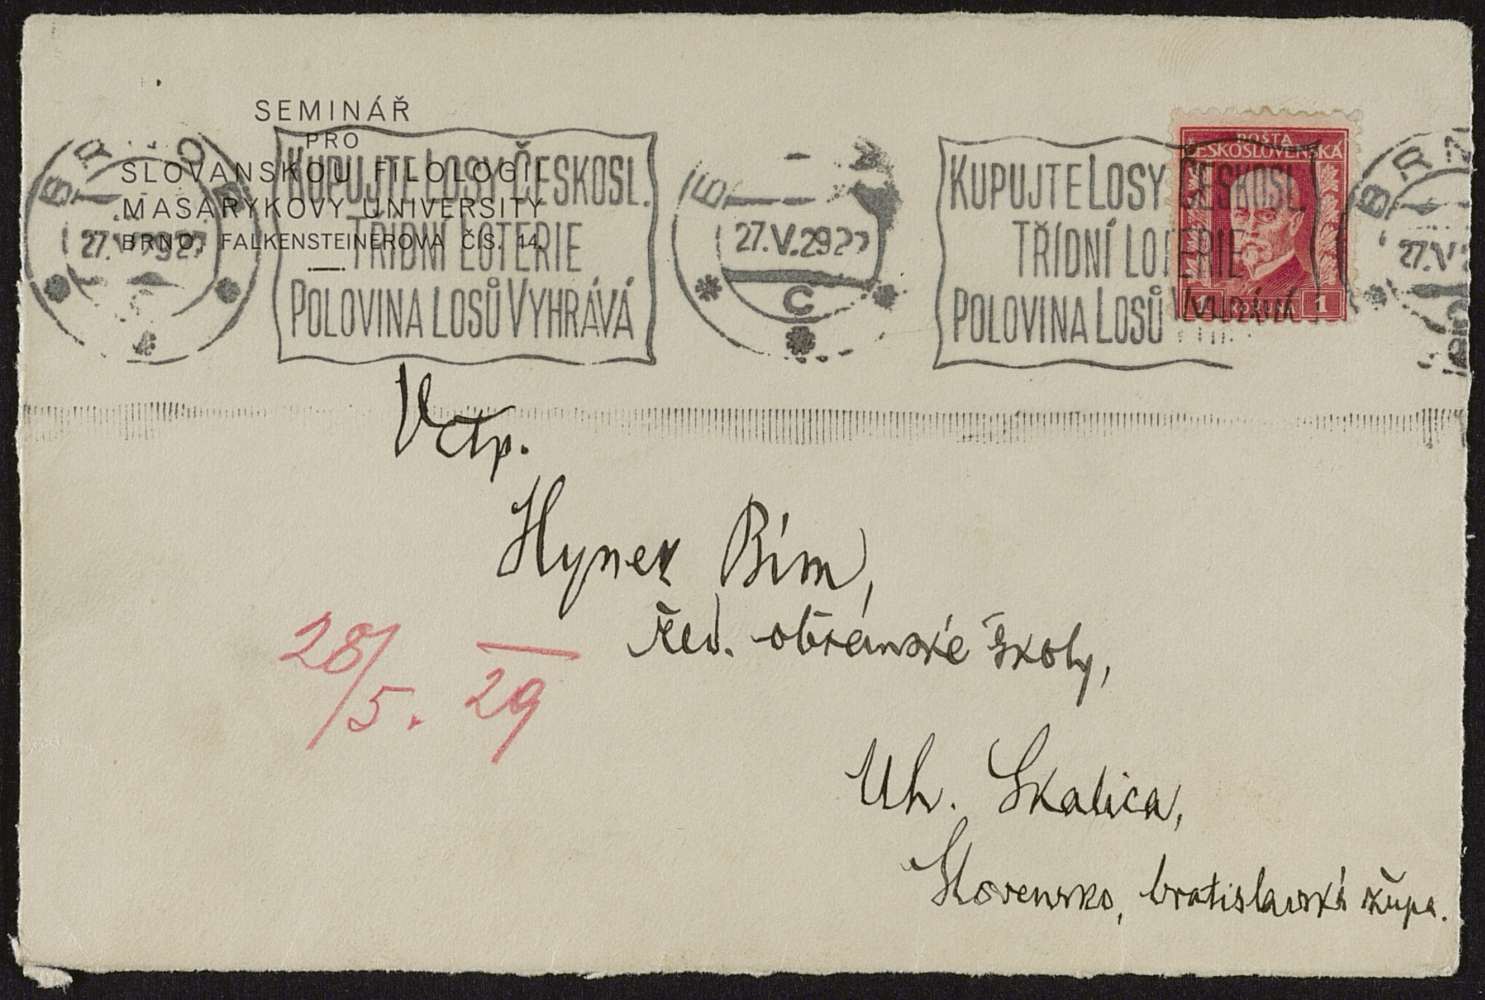 SEMINÁŘ
PRO
SLOVANSKOU FILOLOGII
MASARYKOVY UNIVERSITY
BRNO, FALKENSTEINEROVA ČÍS. 14.
BRNO
27.V.29 22
KUPUJTE LOSY ČESKOSL.
TŘÍDNÍ LOTERIE
POLOVINA LOSŮ VYHRÁVÁ
27.V.29 22
C
KUPUJTE LOSY ČESKOSL.
TŘÍDNÍ LOTERIE
POLOVINA LOSŮ VYHRÁVÁ
POŠTA
ČESKOSLOVENSKÁ
1
BRN
27.V
Vctp.
Hynek Bím,
řed. občanské školy,
28/5. 29
Uh. Skalica,
Slovensko, bratislavská župa.